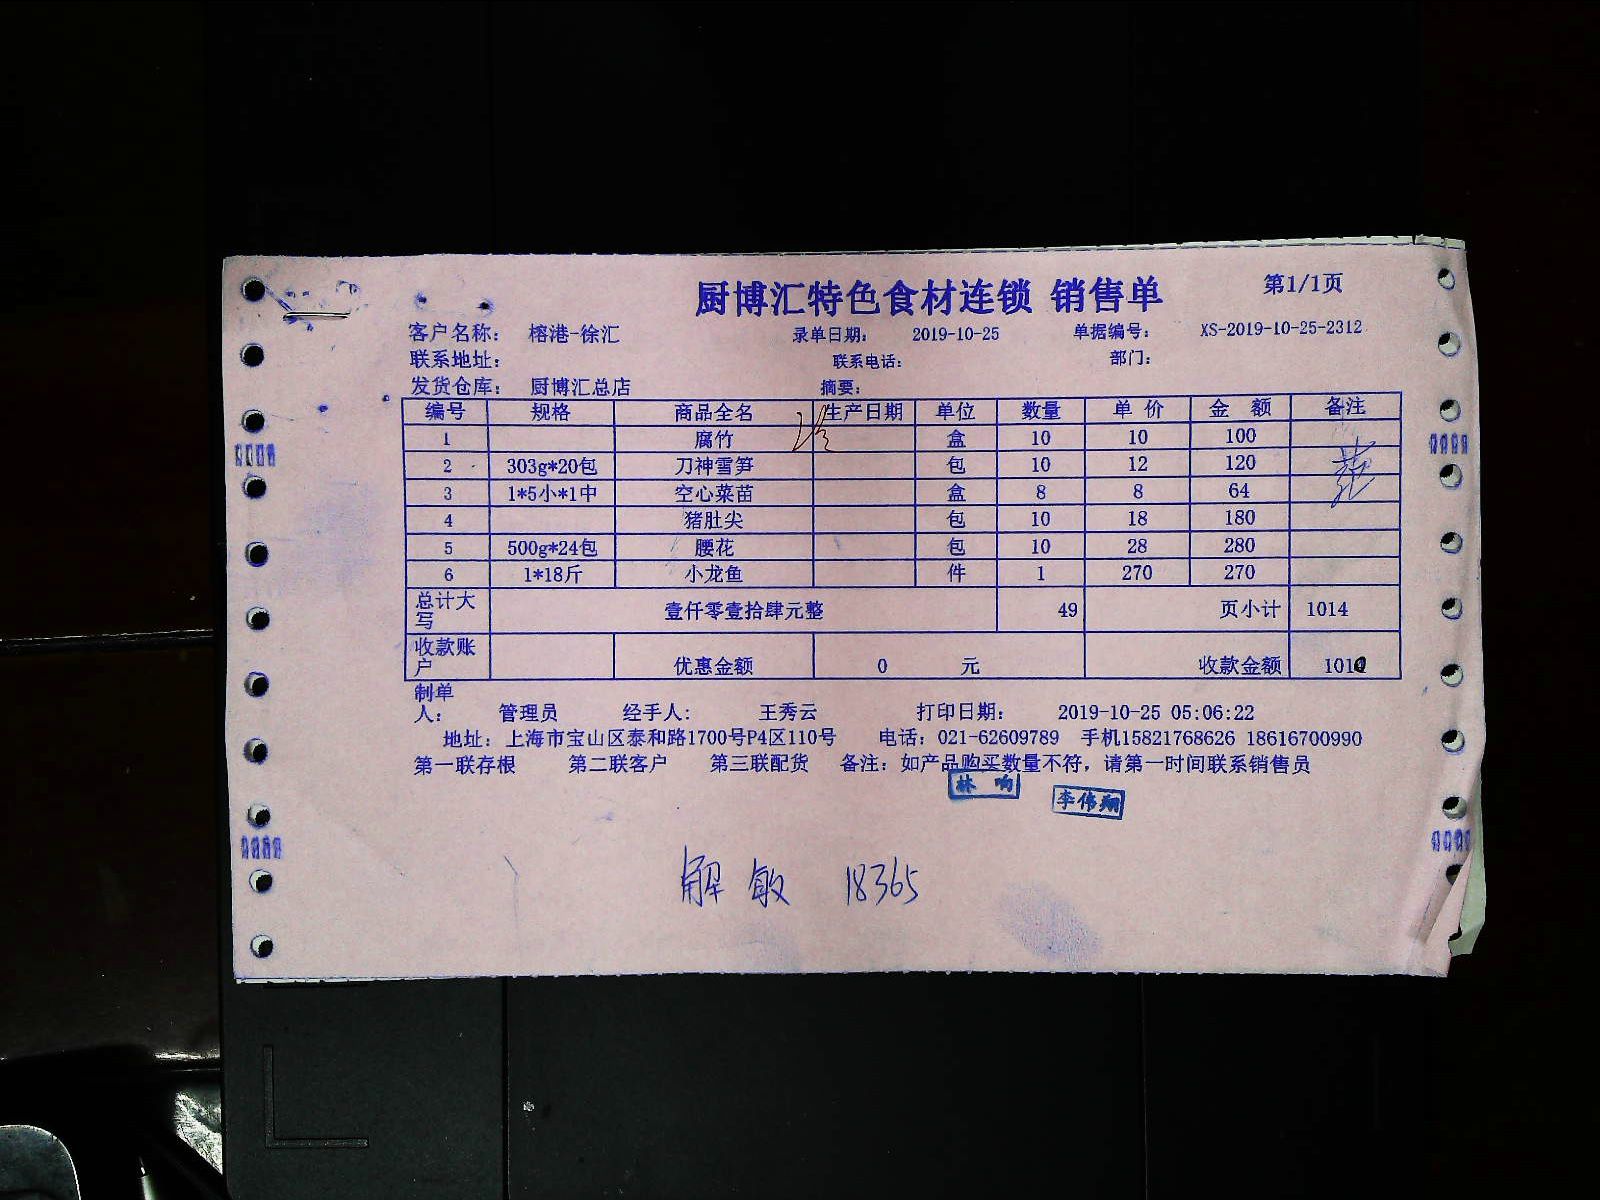 厨博汇特色食材连锁 销售单 第1/1页
客户名称： 榕港-徐汇 录单日期： 2019-10-25 单据编号： XS-2019-10-25-2312
联系地址： 联系电话： 部门：
发货仓库： 厨博汇总店 摘要：
编号 规格 商品全名 生产日期 单位 数量 单 价 金 额 备注
1 腐竹 盒 10 10 100
2 303g*20包 刀神雪笋 包 10 12 120
3 1*5小*1中 空心菜苗 盒 8 8 64
4 猪肚尖 包 10 18 180
5 500g*24包 腰花 包 10 28 280
6 1*18斤 小龙鱼 件 1 270 270
总计大写 壹仟零壹拾肆元整 49 页小计 1014
收款账户 优惠金额 0 元 收款金额 101
制单人： 管理员 经手人： 王秀云 打印日期： 2019-10-25 05:06:22
地址：上海市宝山区泰和路1700号P4区110号 电话：021-62609789 手机15821768626 18616700990
第一联存根 第二联客户 第三联配货 备注：如产品购买数量不符，请第一时间联系销售员
林 响 李伟翔
解敏 18365